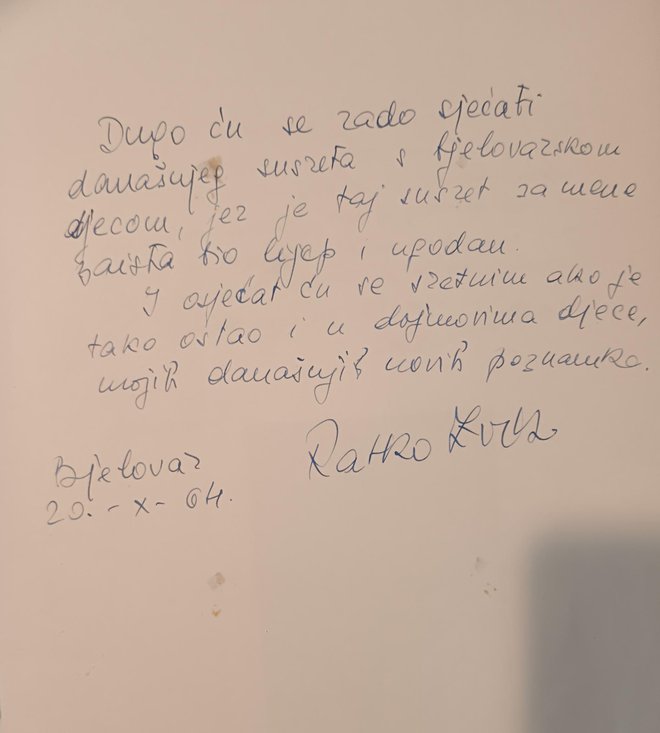 Dugo ću se rado sjećati
današnjeg susreta s bjelovarskom
djecom, jer je taj susret za mene
zaista bio lijep i ugodan.
I osjećat ću se sretnim ako je
tako ostao i u dojmovima djece,
mojih današnjih novih poznanika.
Ratko Zvrko
Bjelovar
20. - X - 64.